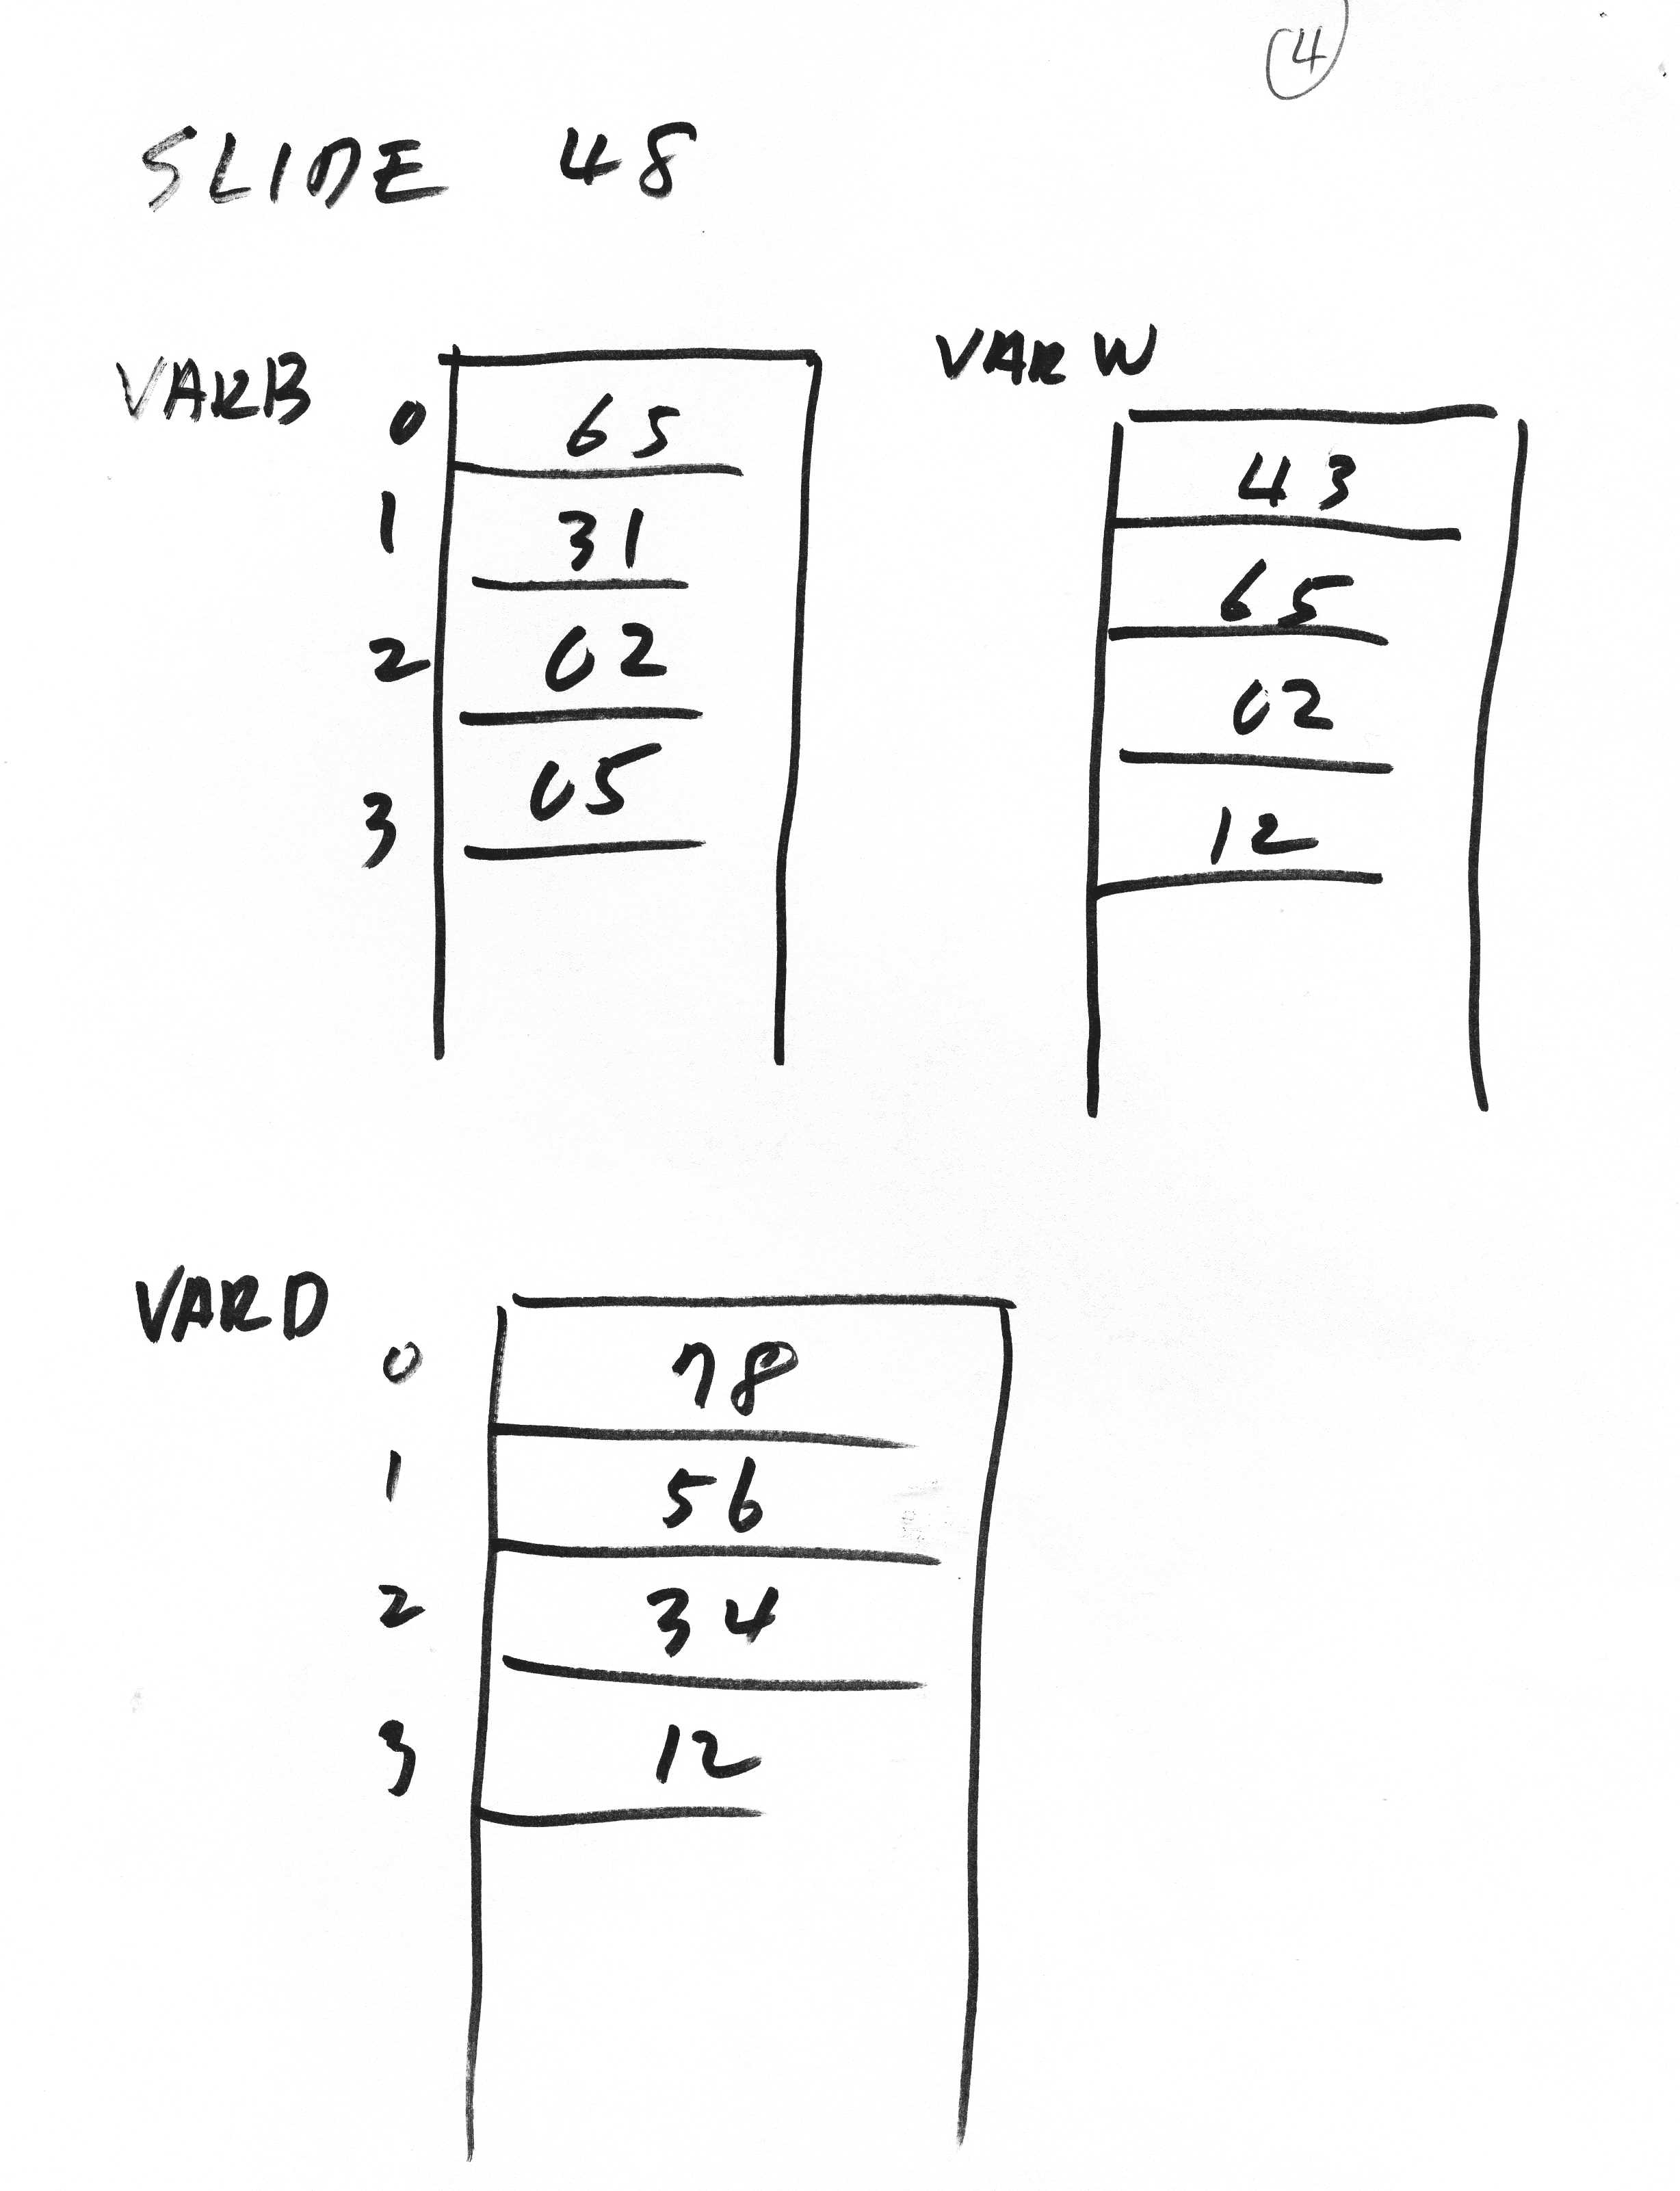 4
SLIDE 48
VARB
0 65
1 31
2 02
3 05
VARW
43
65
02
12
VARD
0 78
1 56
2 34
3 12